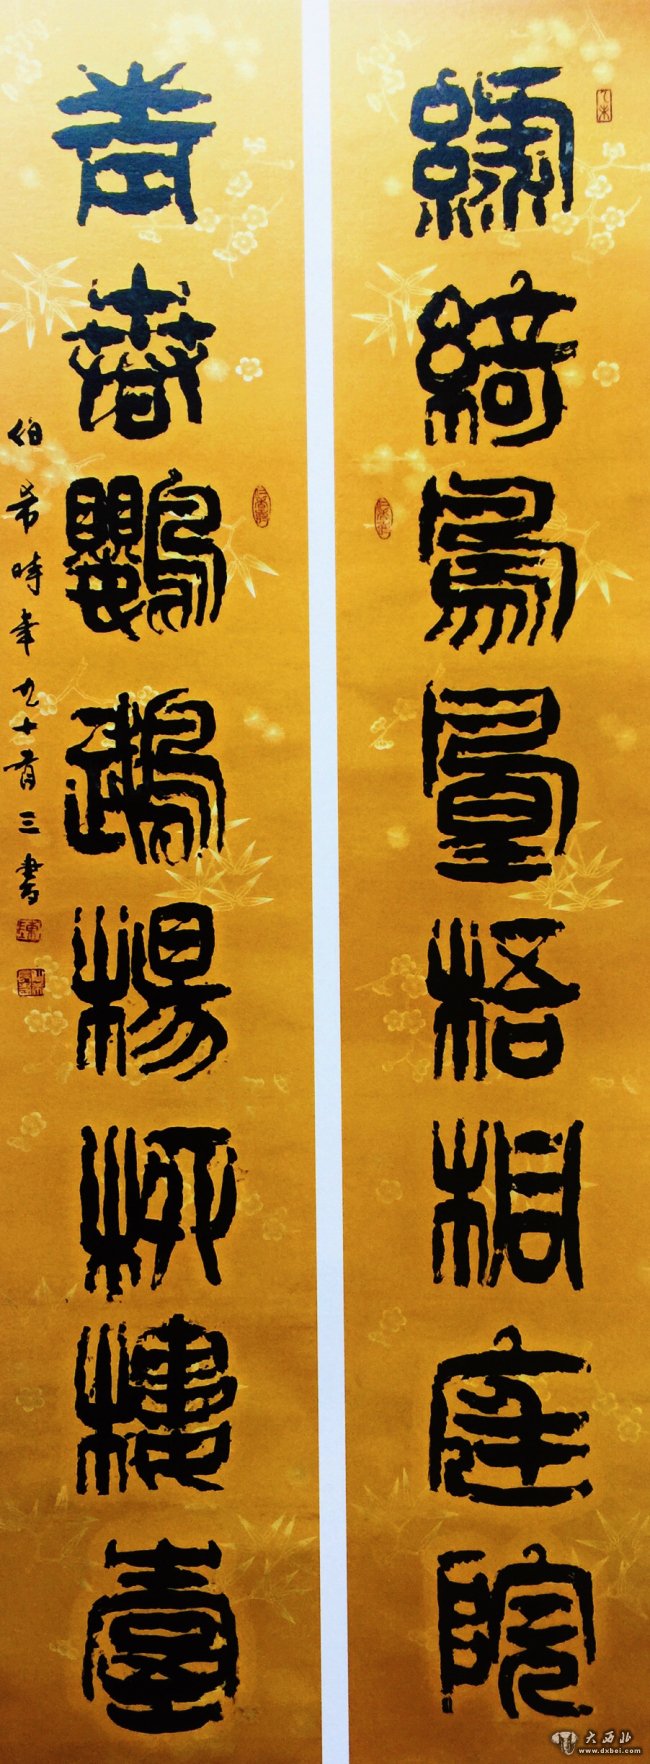 綠綺鳳凰梧桐庭院
青春鸚鵡楊柳樓臺
伯希時年九十有三書
大西北
www.dxbei.com